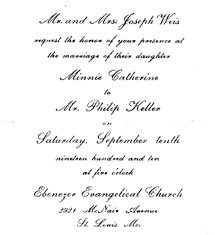 Mr. and Mrs. Joseph Weis
request the honor of your presence at
the marriage of their daughter
Minnie Catherine
to
Mr. Philip Keller
on
Saturday, September tenth
nineteen hundred and ten
at five o'clock
Ebenezer Evangelical Church
2921 McNair Avenue
St. Louis, Mo.